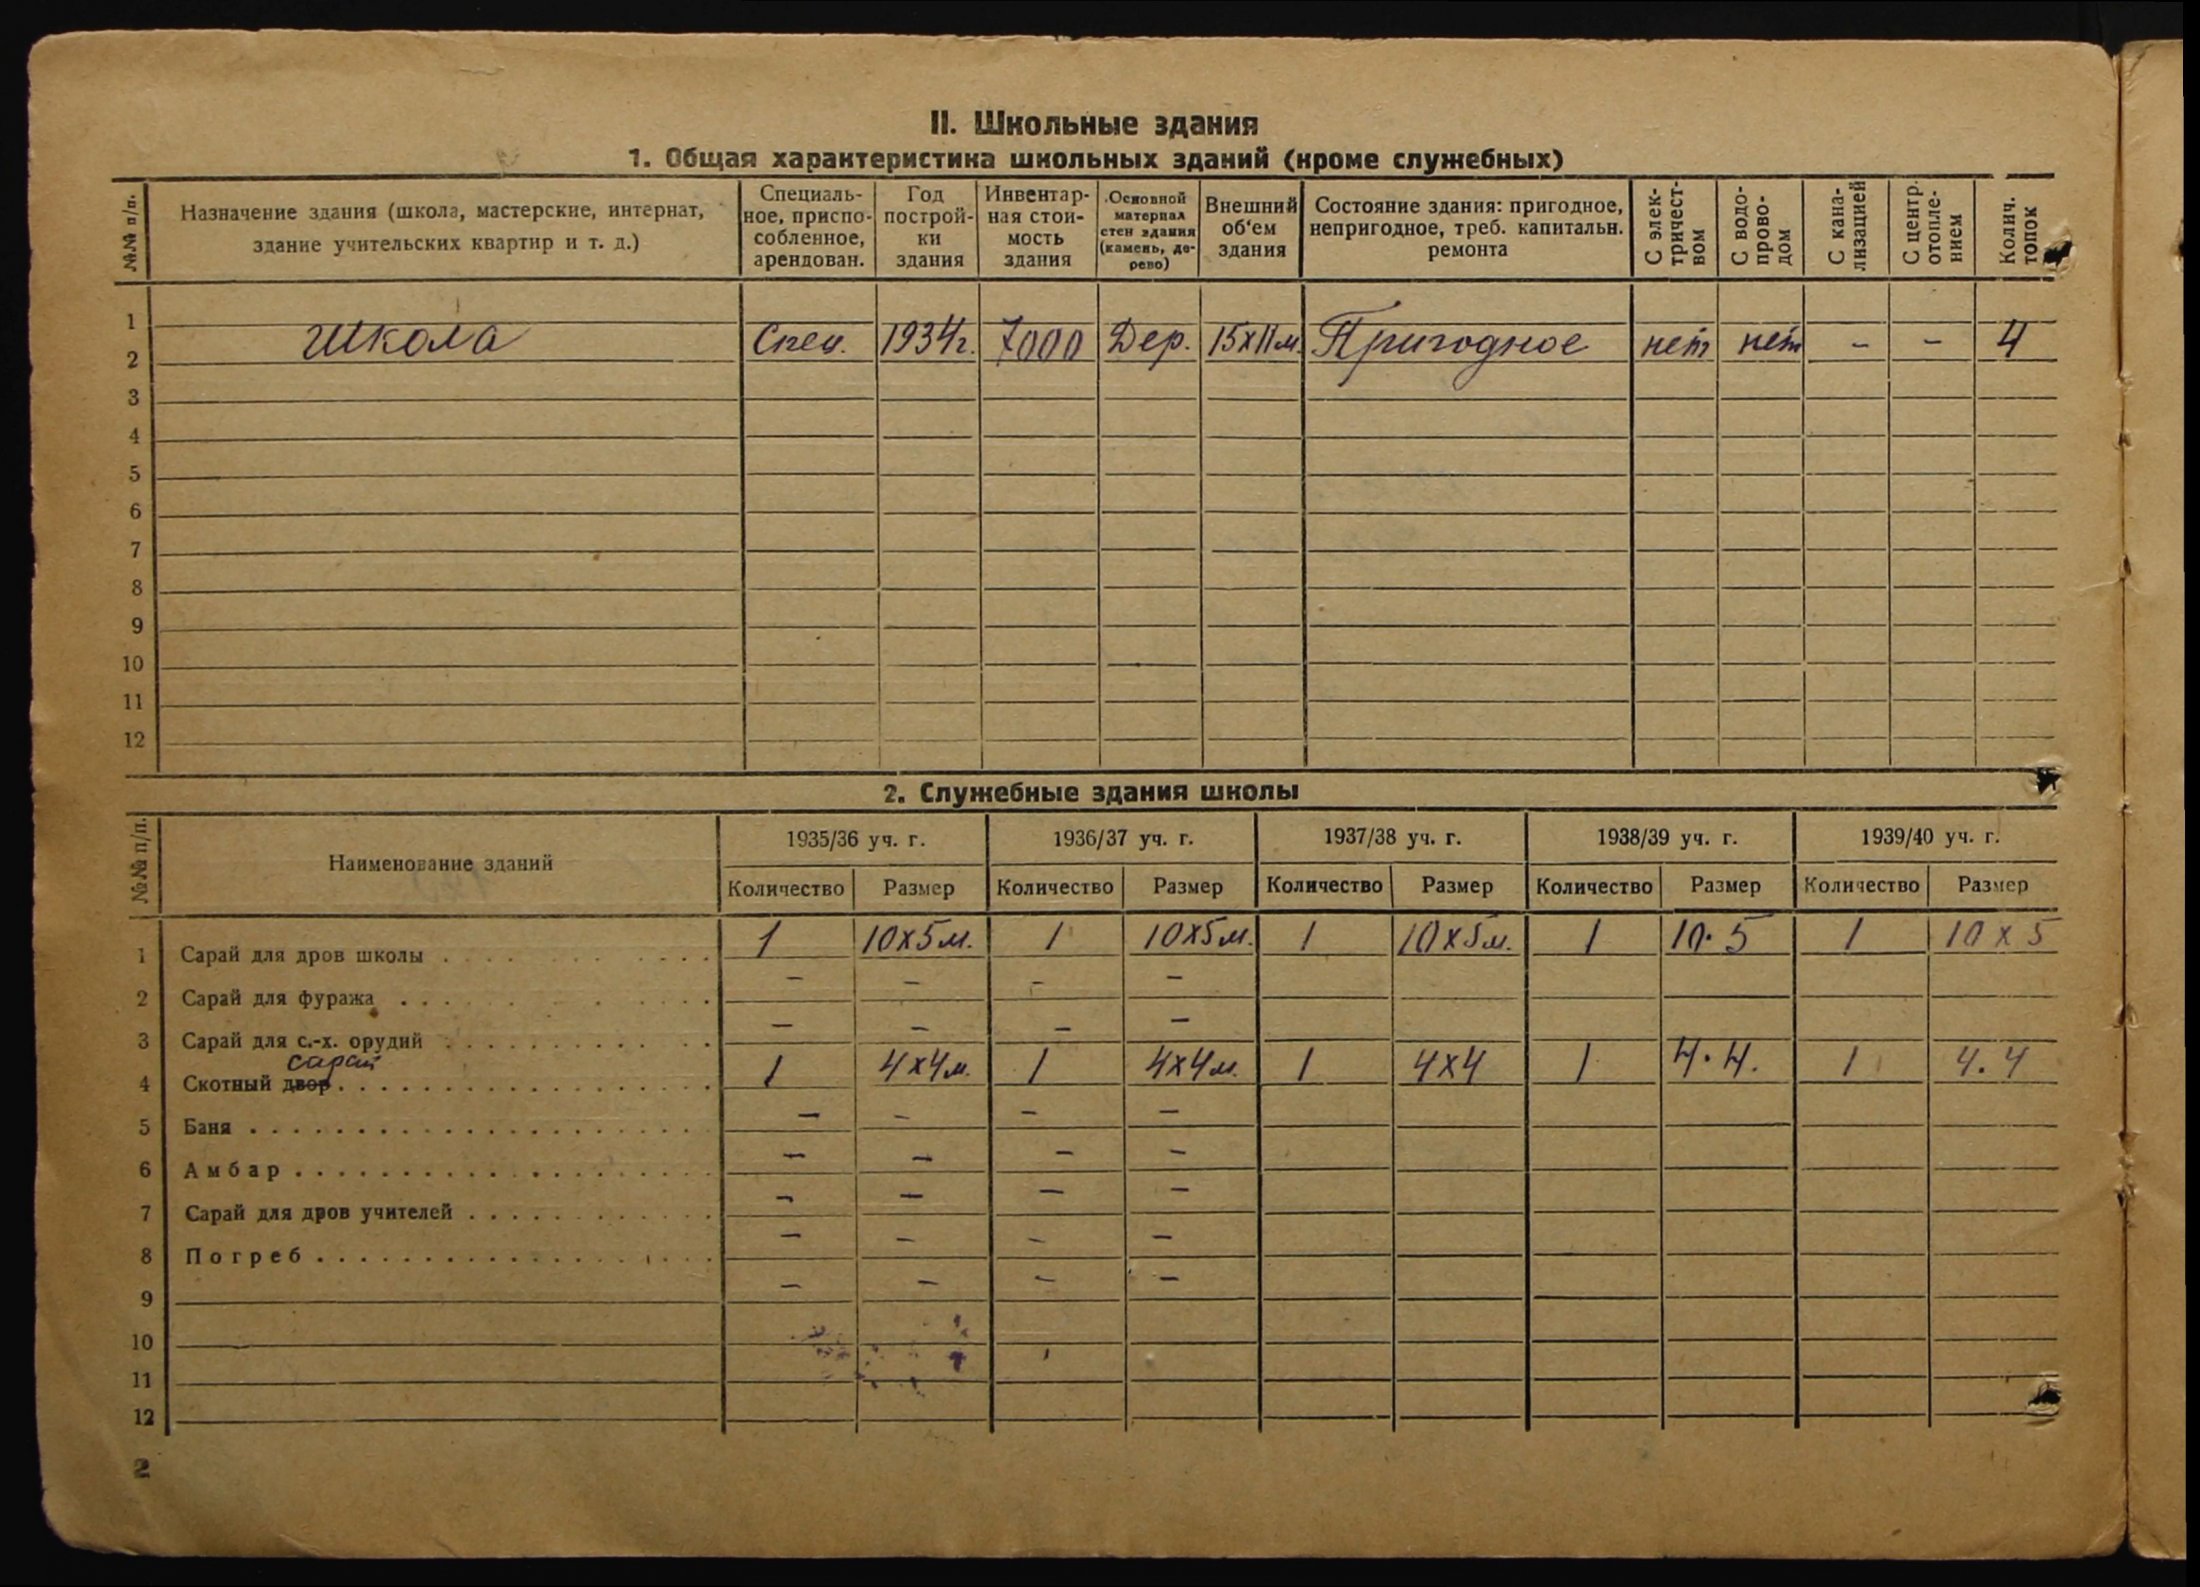 II. Школьные здания
1. Общая характеристика школьных зданий (кроме служебных)
№№ п/п. | Назначение здания (школа, мастерские, интернат, здание учительских квартир и т. д.) | Специаль-ное, приспо-собленное, арендован. | Год построй-ки здания | Инвентар-ная стои-мость здания | Основной материал стен здания (камень, де-рево) | Внешний об‘ем здания | Состояние здания: пригодное, непригодное, треб. капитальн. ремонта | С элек-тричест-вом | С водо-прово-дом | С кана-лизацией | С центр. отопле-нием | Колич. топок
1
2 | Школа | Спец. | 1934г. | 7000 | Дер. | 15х11м. | Пригодное | нет | нет | – | – | 4
3
4
5
6
7
8
9
10
11
12
2. Служебные здания школы
№№ п/п. | Наименование зданий | 1935/36 уч. г. | 1936/37 уч. г. | 1937/38 уч. г. | 1938/39 уч. г. | 1939/40 уч. г.
Количество | Размер | Количество | Размер | Количество | Размер | Количество | Размер | Количество | Размер
1 | Сарай для дров школы | 1 | 10х5м. | 1 | 10х5м. | 1 | 10х5м. | 1 | 10·5 | 1 | 10х5
2 | Сарай для фуража | – | – | – | –
3 | Сарай для с.-х. орудий | – | – | – | –
сарай
4 | Скотный двор | 1 | 4х4м. | 1 | 4х4м. | 1 | 4х4 | 1 | 4·4. | 1 | 4.4
5 | Баня | – | – | – | –
6 | Амбар | – | – | – | –
7 | Сарай для дров учителей | – | – | – | –
8 | Погреб | – | – | – | –
9 | – | – | – | –
10
11
12
2